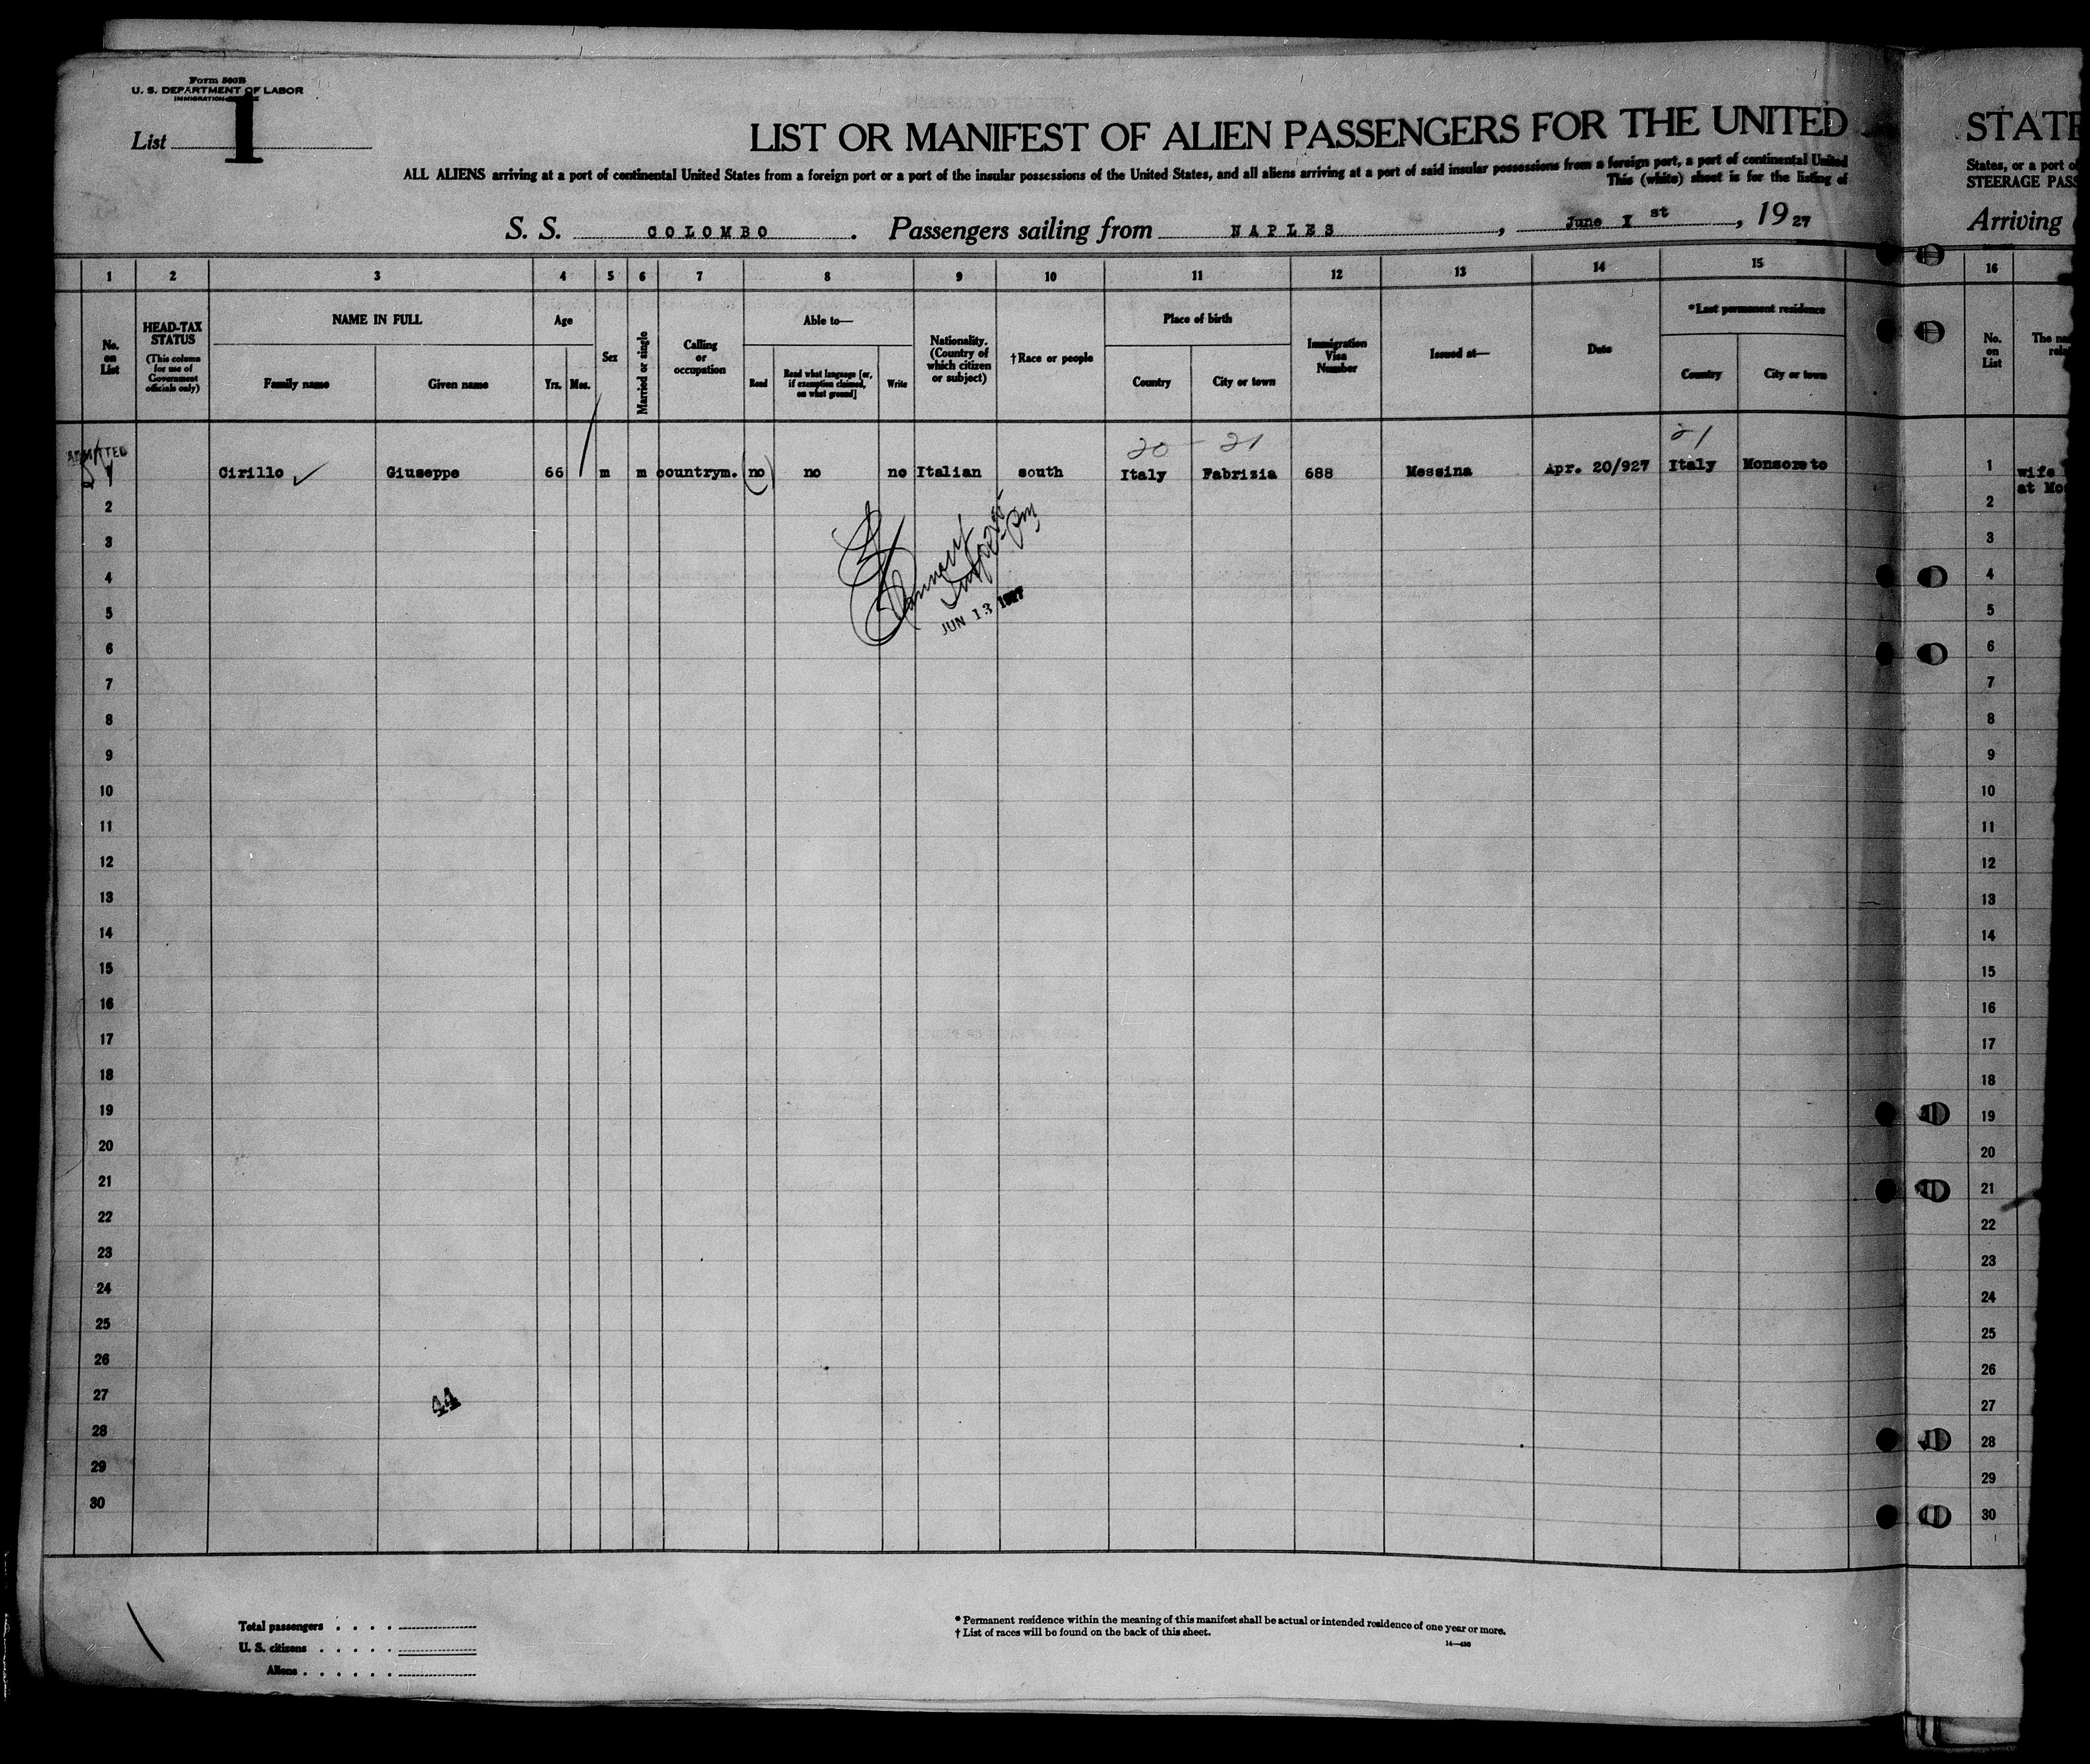 Form 500B
U. S. DEPARTMENT OF LABOR
IMMIGRATION
List 1
LIST OR MANIFEST OF ALIEN PASSENGERS FOR THE UNITED
ALL ALIENS arriving at a port of continental United States from a foreign port or a port of the insular possessions of the United States, and all aliens arriving at a port of said insular possessions from a foreign port, a port of continental United
This (white) sheet is for the listing of
S. S. COLOMBO . Passengers sailing from NAPLES , June I st , 19 27
1 2 3 4 5 6 7 8 9 10 11 12 13 14 15
No. on List
HEAD-TAX STATUS
(This column for use of Government officials only)
NAME IN FULL
Family name
Given name
Age
Yrs. Mos.
Sex
Married or single
Calling or occupation
Able to—
Read
Read what language [or, if exemption claimed, on what ground]
Write
Nationality. (Country of which citizen or subject)
†Race or people
Place of birth
Country
City or town
Immigration Visa Number
Issued at—
Date
*Last permanent residence
Country
City or town
20 - 21
21
ADMITTED
1 Cirillo Giuseppe 66 m m countrym. no no no Italian south Italy Fabrizia 688 Messina Apr. 20/927 Italy Monsoreto
JUN 13 1927
2
3
4
5
6
7
8
9
10
11
12
13
14
15
16
17
18
19
20
21
22
23
24
25
26
27
28
29
30
44
Total passengers
U. S. citizens
Aliens
* Permanent residence within the meaning of this manifest shall be actual or intended residence of one year or more.
† List of races will be found on the back of this sheet.
STATE
States, or a port of
STEERAGE PASS
Arriving
16
No. on List
The na
rela
1 wife
at Mo
2
3
4
5
6
7
8
9
10
11
12
13
14
15
16
17
18
19
20
21
22
23
24
25
26
27
28
29
30